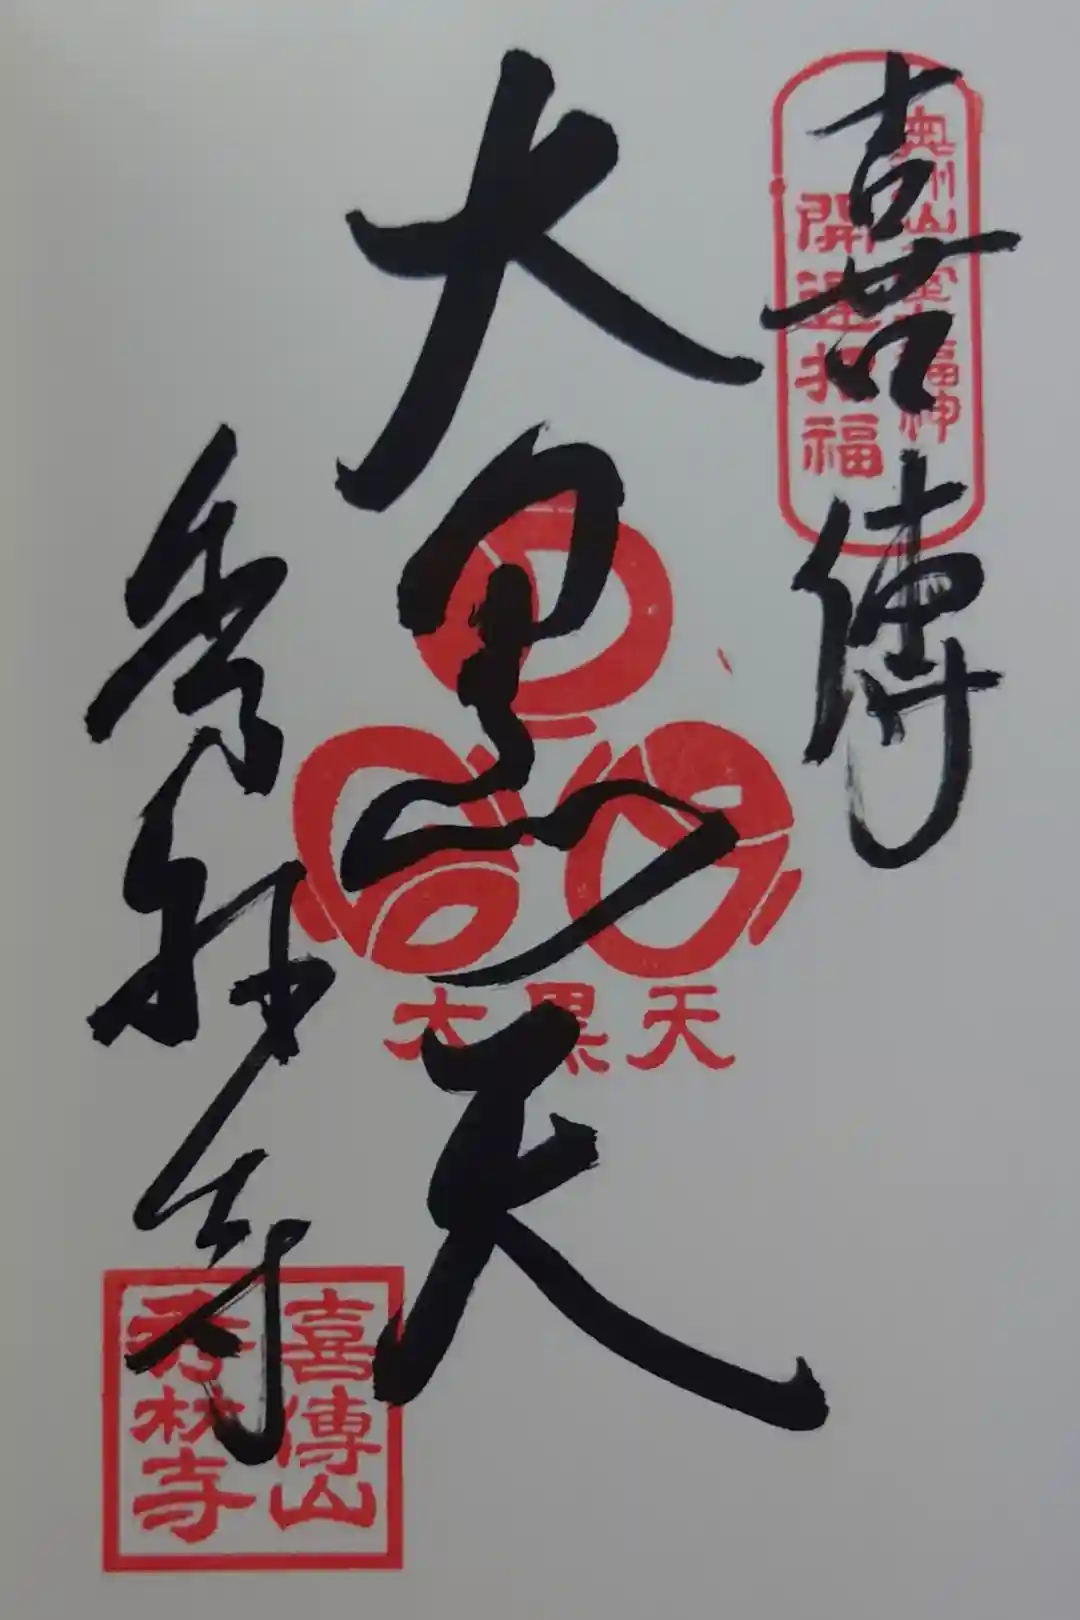 喜傳
奥州仙臺七福神
開運招福
大黒天
大黒天
秀林寺
喜傳山
秀林寺